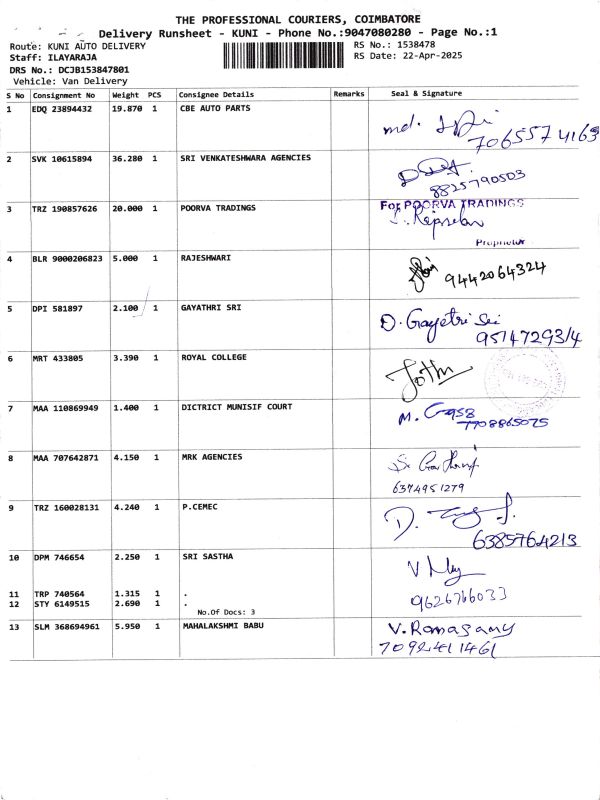 THE PROFESSIONAL COURIERS, COIMBATORE
Delivery Runsheet - KUNI - Phone No.:9047080280 - Page No.:1
Route: KUNI AUTO DELIVERY
RS No.: 1538478
Staff: ILAYARAJA
RS Date: 22-Apr-2025
DRS No.: DCJB153847801
Vehicle: Van Delivery
S No Consignment No Weight PCS Consignee Details Remarks Seal & Signature
1 EDQ 23894432 19.870 1 CBE AUTO PARTS
md.
7065574163
2 SVK 10615894 36.280 1 SRI VENKATESHWARA AGENCIES
8825790503
3 TRZ 190857626 20.000 1 POORVA TRADINGS
For POORVA TRADINGS
Proprietor
4 BLR 9000206823 5.000 1 RAJESHWARI
9442064324
5 DPI 581897 2.100 1 GAYATHRI SRI
D. Gayetri Sri
9514729314
6 MRT 433805 3.390 1 ROYAL COLLEGE
7 MAA 110869949 1.400 1 DICTRICT MUNISIF COURT
M.
7708865075
8 MAA 707642871 4.150 1 MRK AGENCIES
6374951279
9 TRZ 160028131 4.240 1 P.CEMEC
D.
6385764213
10 DPM 746654 2.250 1 SRI SASTHA
V
11 TRP 740564 1.315 1 .
12 STY 6149515 2.690 1 .
9626766033
No.Of Docs: 3
13 SLM 368694961 5.950 1 MAHALAKSHMI BABU
V. Ramasamy
7092411461